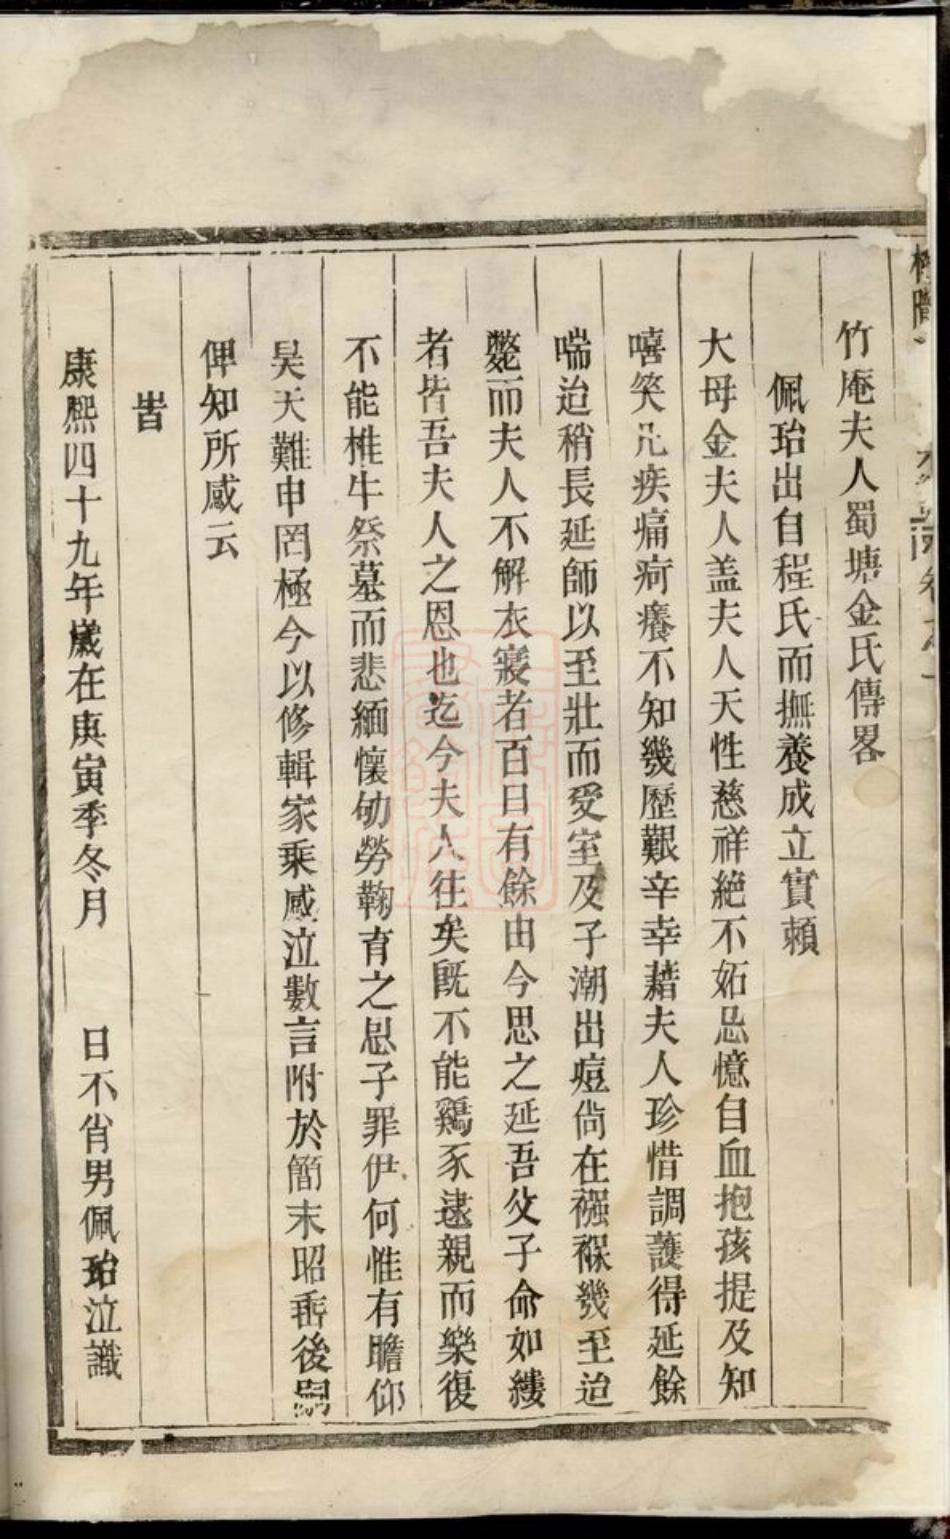 竹庵夫人蜀塘金氏傳畧
佩珆出自程氏而撫養成立實賴
大母金夫人盖夫人天性慈祥絶不妬忌憶自血抱孩提及知
嘻笑凢疾痛疴癢不知幾歷艱辛幸藉夫人珍惜調護得延餘
喘迨稍長延師以至壯而受室及子潮出痘尙在襁褓幾至迨
斃而夫人不解衣寢者百日有餘由今思之延吾父子命如縷
者皆吾夫人之恩也迄今夫人往矣旣不能鷄豕逮親而樂復
不能椎牛祭墓而悲緬懷劬勞鞠育之恩子罪伊何惟有瞻仰
昊天難申罔極今以修輯家乘感泣數言附於簡末昭垂後嗣
俾知所感云
旹
康熙四十九年歲在庚寅季冬月 日不肖男佩珆泣識